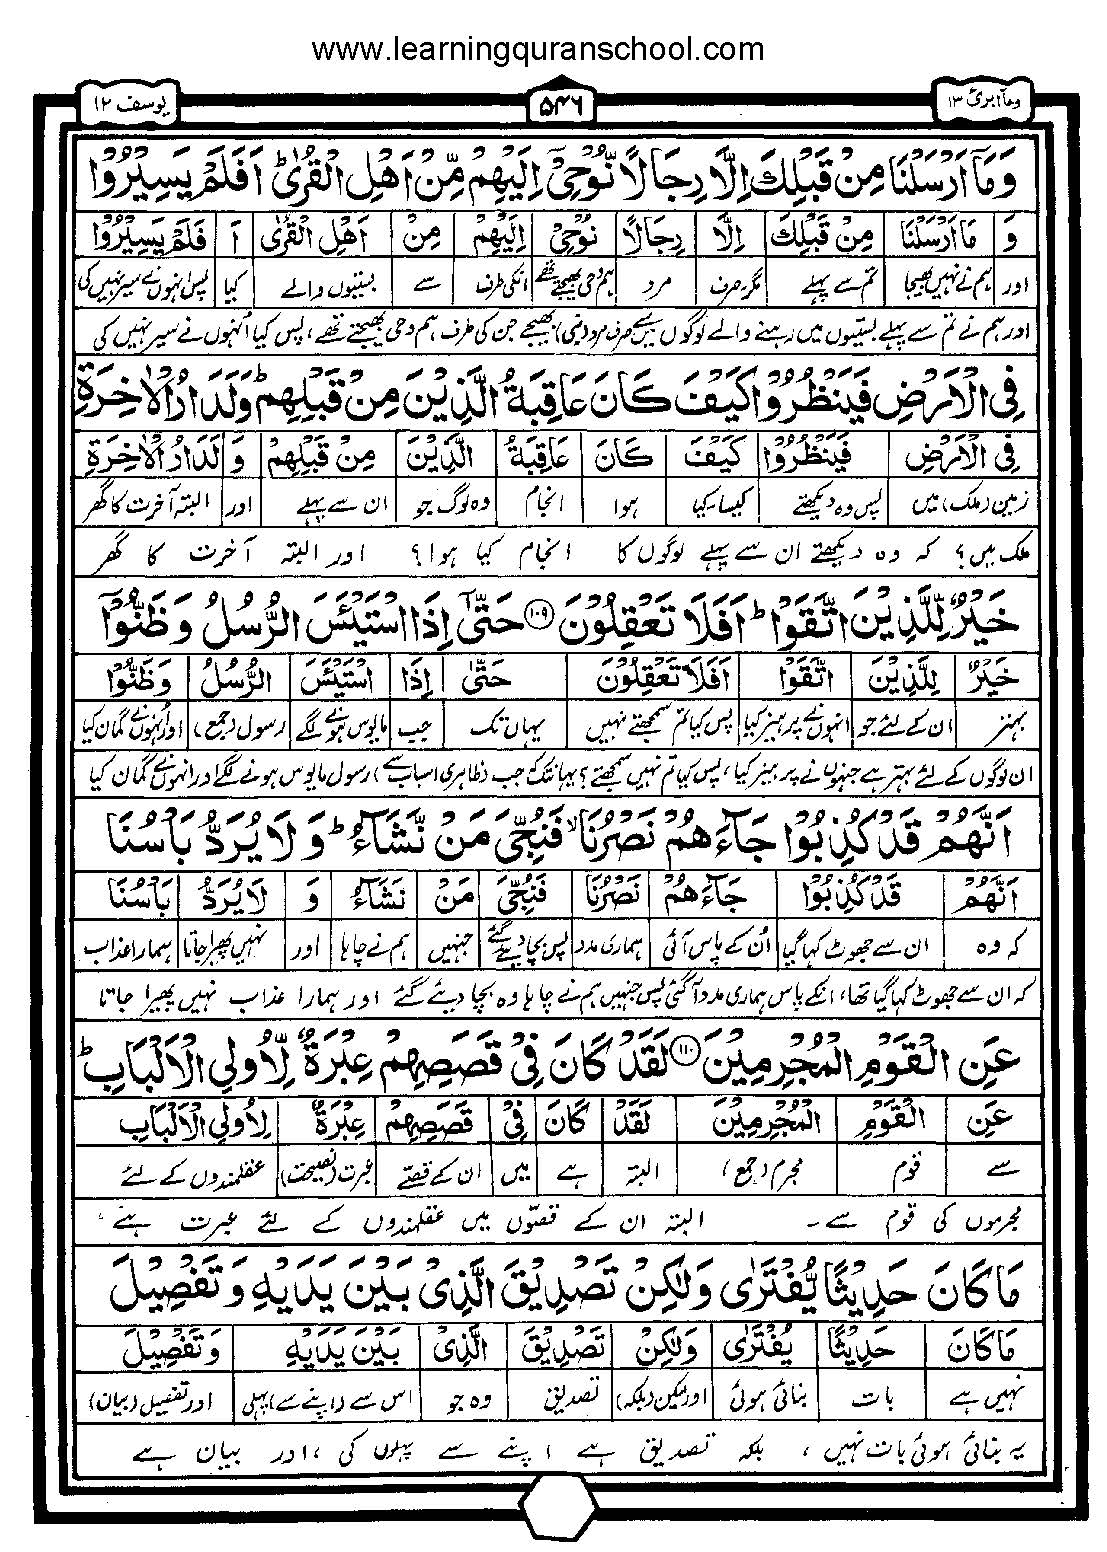 www.learningquranschool.com
یوسف ۱۲ ۵۴۶ وما ابرئ ۱۳
وَمَآ اَرْسَلْنَا مِنْ قَبْلِكَ اِلَّا رِجَالًا نُّوْحِيْٓ اِلَيْهِمْ مِّنْ اَهْلِ الْقُرٰىؕ اَفَلَمْ يَسِيْرُوْا
وَ مَا اَرْسَلْنَا مِنْ قَبْلِكَ اِلَّا رِجَالًا نُوْحِيْٓ اِلَيْهِمْ مِنْ اَهْلِ الْقُرٰى اَ فَلَمْ يَسِيْرُوْا
اور ہم نے نہیں بھیجا تم سے پہلے مگر۔صرف مرد ہم وحی بھیجتے تھے انکی طرف سے بستیوں والے کیا پس انہوں نے سیر نہیں کی
اور ہم نے تم سے پہلے بستیوں میں رہنے والے لوگوں میں سے صرف مرد (نبی) بھیجے جن کی طرف ہم وحی بھیجتے تھے، پس کیا انہوں نے سیر نہیں کی
فِي الْاَرْضِ فَيَنْظُرُوْا كَيْفَ كَانَ عَاقِبَةُ الَّذِيْنَ مِنْ قَبْلِهِمْؕ وَلَدَارُ الْاٰخِرَةِ
فِي الْاَرْضِ فَيَنْظُرُوْا كَيْفَ كَانَ عَاقِبَةُ الَّذِيْنَ مِنْ قَبْلِهِمْ وَ لَدَارُ الْاٰخِرَةِ
زمین (ملک) میں پس وہ دیکھتے کیسا۔کیا ہوا انجام وہ لوگ جو ان سے پہلے اور البتہ آخرت کا گھر
ملک میں؟ کہ وہ دیکھتے ان سے پہلے لوگوں کا انجام کیا ہوا؟ اور البتہ آخرت کا گھر
خَيْرٌ لِّلَّذِيْنَ اتَّقَوْاؕ اَفَلَا تَعْقِلُوْنَ ۱۰۹ حَتّٰٓى اِذَا اسْتَيْـَٔسَ الرُّسُلُ وَظَنُّوْٓا
خَيْرٌ لِلَّذِيْنَ اتَّقَوْا اَفَلَا تَعْقِلُوْنَ حَتّٰى اِذَا اسْتَيْـَٔسَ الرُّسُلُ وَظَنُّوْٓا
بہتر ان کے لئے جو انہوں نے پرہیز کیا پس کیا تم سمجھتے نہیں یہاں تک جب مایوس ہونے لگے رسول (جمع) اور انہوں نے گمان کیا
ان لوگوں کے لئے بہتر ہے جنہوں نے پرہیز کیا، پس کیا تم نہیں سمجھتے؟ یہانتک جب (ظاہری اسباب سے) رسول مایوس ہونے لگے اور انہوں نے گمان کیا
اَنَّهُمْ قَدْ كُذِبُوْا جَآءَهُمْ نَصْرُنَاۙ فَنُجِّيَ مَنْ نَّشَآءُؕ وَلَا يُرَدُّ بَاْسُنَا
اَنَّهُمْ قَدْ كُذِبُوْا جَآءَهُمْ نَصْرُنَا فَنُجِّيَ مَنْ نَشَآءُ وَ لَا يُرَدُّ بَاْسُنَا
کہ وہ ان سے جھوٹ کہا گیا اُن کے پاس آئی ہماری مدد پس بچا دیئے گئے جنہیں ہم نے چاہا اور نہیں پھیرا جاتا ہمارا عذاب
کہ ان سے جھوٹ کہا گیا تھا، انکے پاس ہماری مدد آگئی پس جنہیں ہم نے چاہا وہ بچا دیئے گئے اور ہمارا عذاب نہیں پھیرا جاتا
عَنِ الْقَوْمِ الْمُجْرِمِيْنَ ۱۱۰ لَقَدْ كَانَ فِيْ قَصَصِهِمْ عِبْرَةٌ لِّاُولِي الْاَلْبَابِؕ
عَنِ الْقَوْمِ الْمُجْرِمِيْنَ لَقَدْ كَانَ فِيْ قَصَصِهِمْ عِبْرَةٌ لِاُولِي الْاَلْبَابِ
سے قوم مجرم (جمع) البتہ ہے میں ان کے قصے عبرت (نصیحت) عقلمندوں کے لئے
مجرموں کی قوم سے۔ البتہ ان کے قصّوں میں عقلمندوں کے لئے عبرت ہے،
مَا كَانَ حَدِيْثًا يُّفْتَرٰى وَلٰكِنْ تَصْدِيْقَ الَّذِيْ بَيْنَ يَدَيْهِ وَتَفْصِيْلَ
مَا كَانَ حَدِيْثًا يُفْتَرٰى وَلٰكِنْ تَصْدِيْقَ الَّذِيْ بَيْنَ يَدَيْهِ وَتَفْصِيْلَ
نہیں ہے بات بنائی ہوئی اور لیکن (بلکہ) تصدیق وہ جو اس سے (اپنے سے) پہلی اور تفصیل (بیان)
یہ بنائی ہوئی بات نہیں، بلکہ تصدیق ہے اپنے سے پہلوں کی، اور بیان ہے